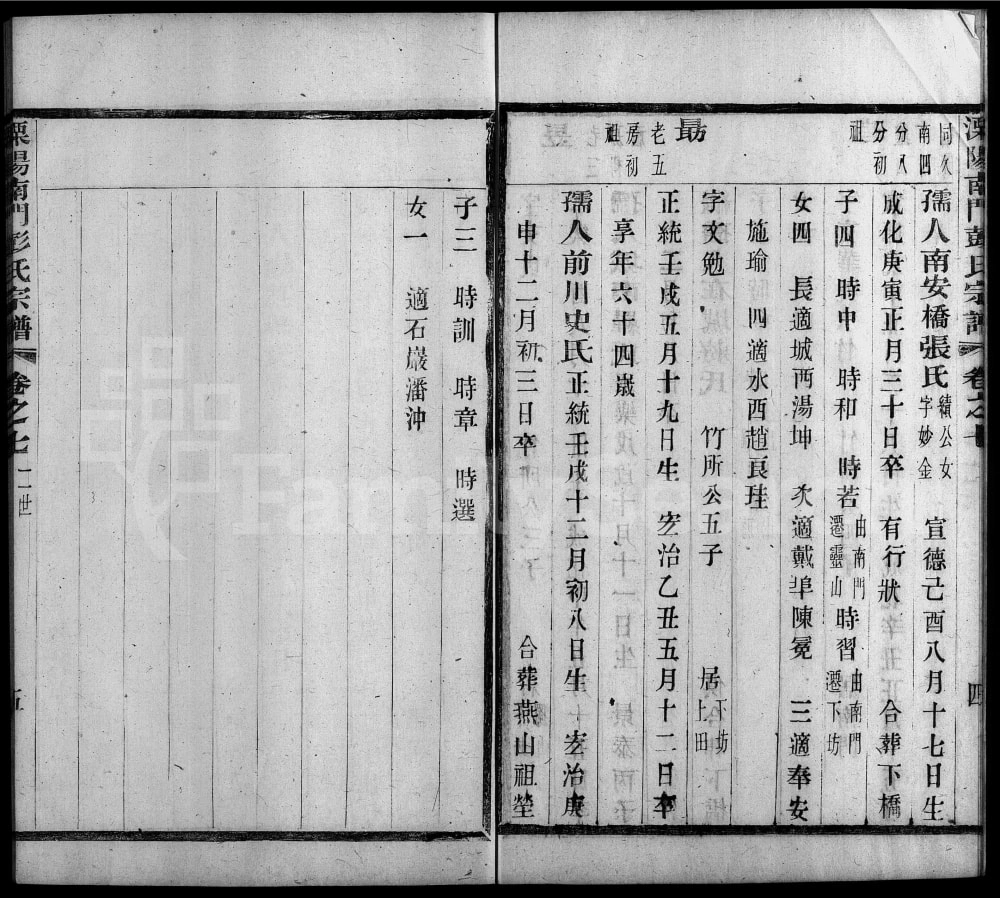 溧陽南門彭氏宗譜 卷之七 四
同久
南四
分八
分初
祖
孺人南安橋張氏 績公女 字妙金 宣德己酉八月十七日生
成化庚寅正月三十日卒 有行狀 合葬下橋
子四 時中 時和 時若 由南門 遷靈山 時習 由南門 遷下坊
女四 長適城西湯坤 次適戴埠陳冕 三適奉安
施瑜 四適水西趙良珪
最
老五
房初
祖
字文勉 竹所公五子 居 下坊 上田
正統壬戌五月十九日生 宏治乙丑五月十二日卒
享年六十四歲
孺人前川史氏 正統壬戌十二月初八日生 宏治庚
申十二月初三日卒 合葬燕山祖塋
子三 時訓 時章 時選
女一 適石巖潘沖
溧陽南門彭氏宗譜 卷之七 二世 五